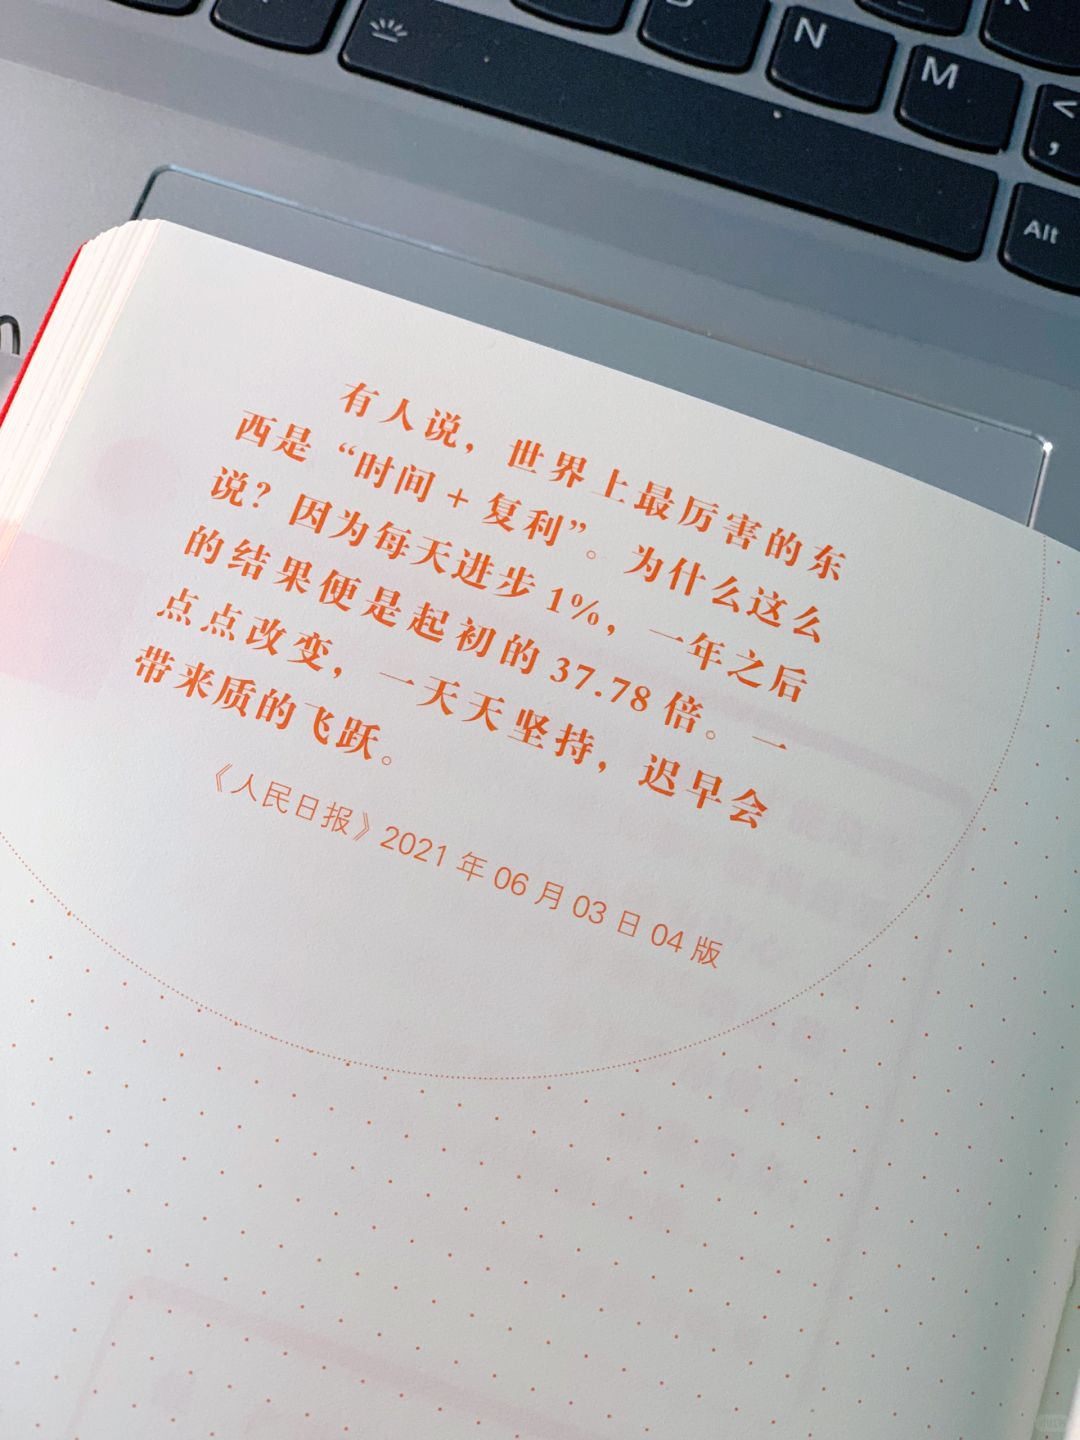 N
M
<
,
Alt
有人说，世界上最厉害的东
西是“时间 + 复利”。为什么这么
说？因为每天进步 1%，一年之后
的结果便是起初的 37.78 倍。一
点点改变，一天天坚持，迟早会
带来质的飞跃。
《人民日报》2021 年 06 月 03 日 04 版